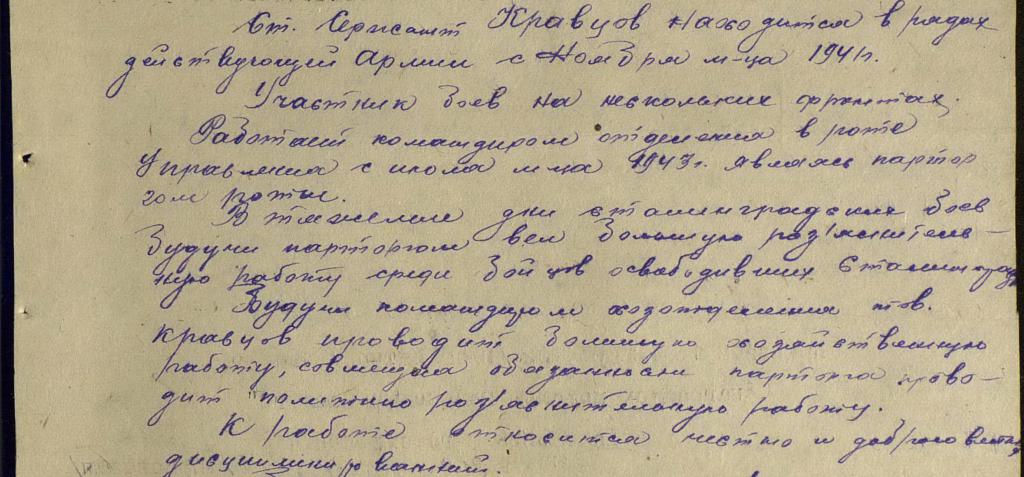 Ст. Сержант Кравцов находится в рядах
действующей Армии с Ноября м-ца 1941г.
Участник боев на нескольких фронтах.
Работает командиром отделения в роте
Управления с июля м-ца 1943г. являясь партор
гом роты.
В тяжелые дни сталинградских боев
будучи парторгом вел большую раз'яснитель-
ную работу среди бойцов освободивших Сталинград
Будучи командиром хозотделения тов.
Кравцов проводит большую хозяйственную
работу, совмещая обязанности парторга прово-
дит политико раз'яснительную работу.
К работе относится честно и добросовестно,
дисциплинированный.